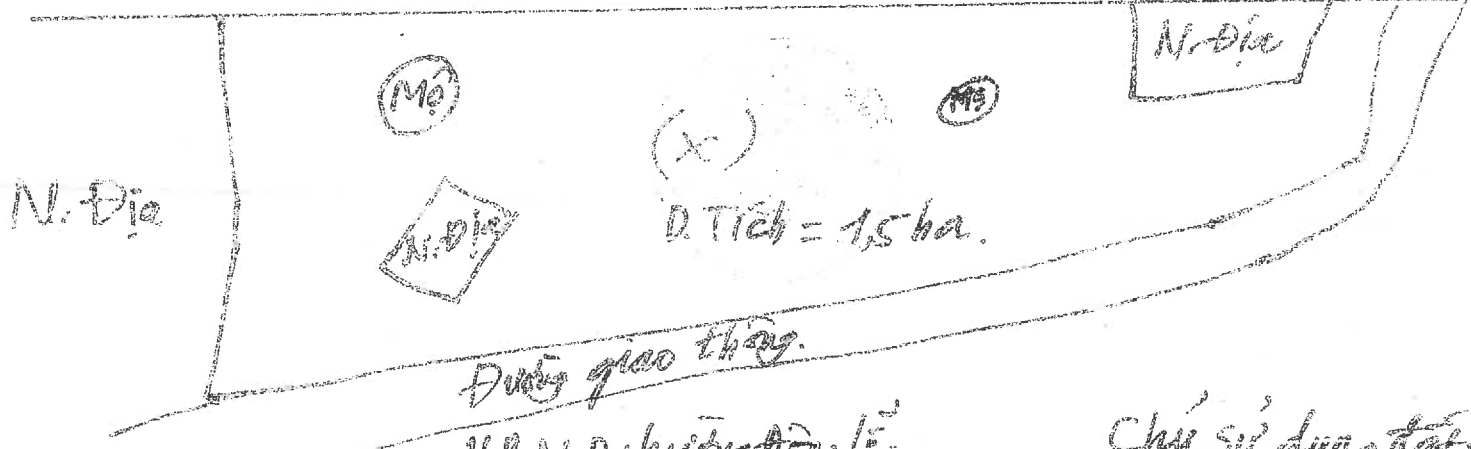 N-Địa
Mộ
Mộ
(x)
N. Địa
N. Địa
D. Tích = 1,5 ha.
Đường giao thông.
Chủ sử dụng đất